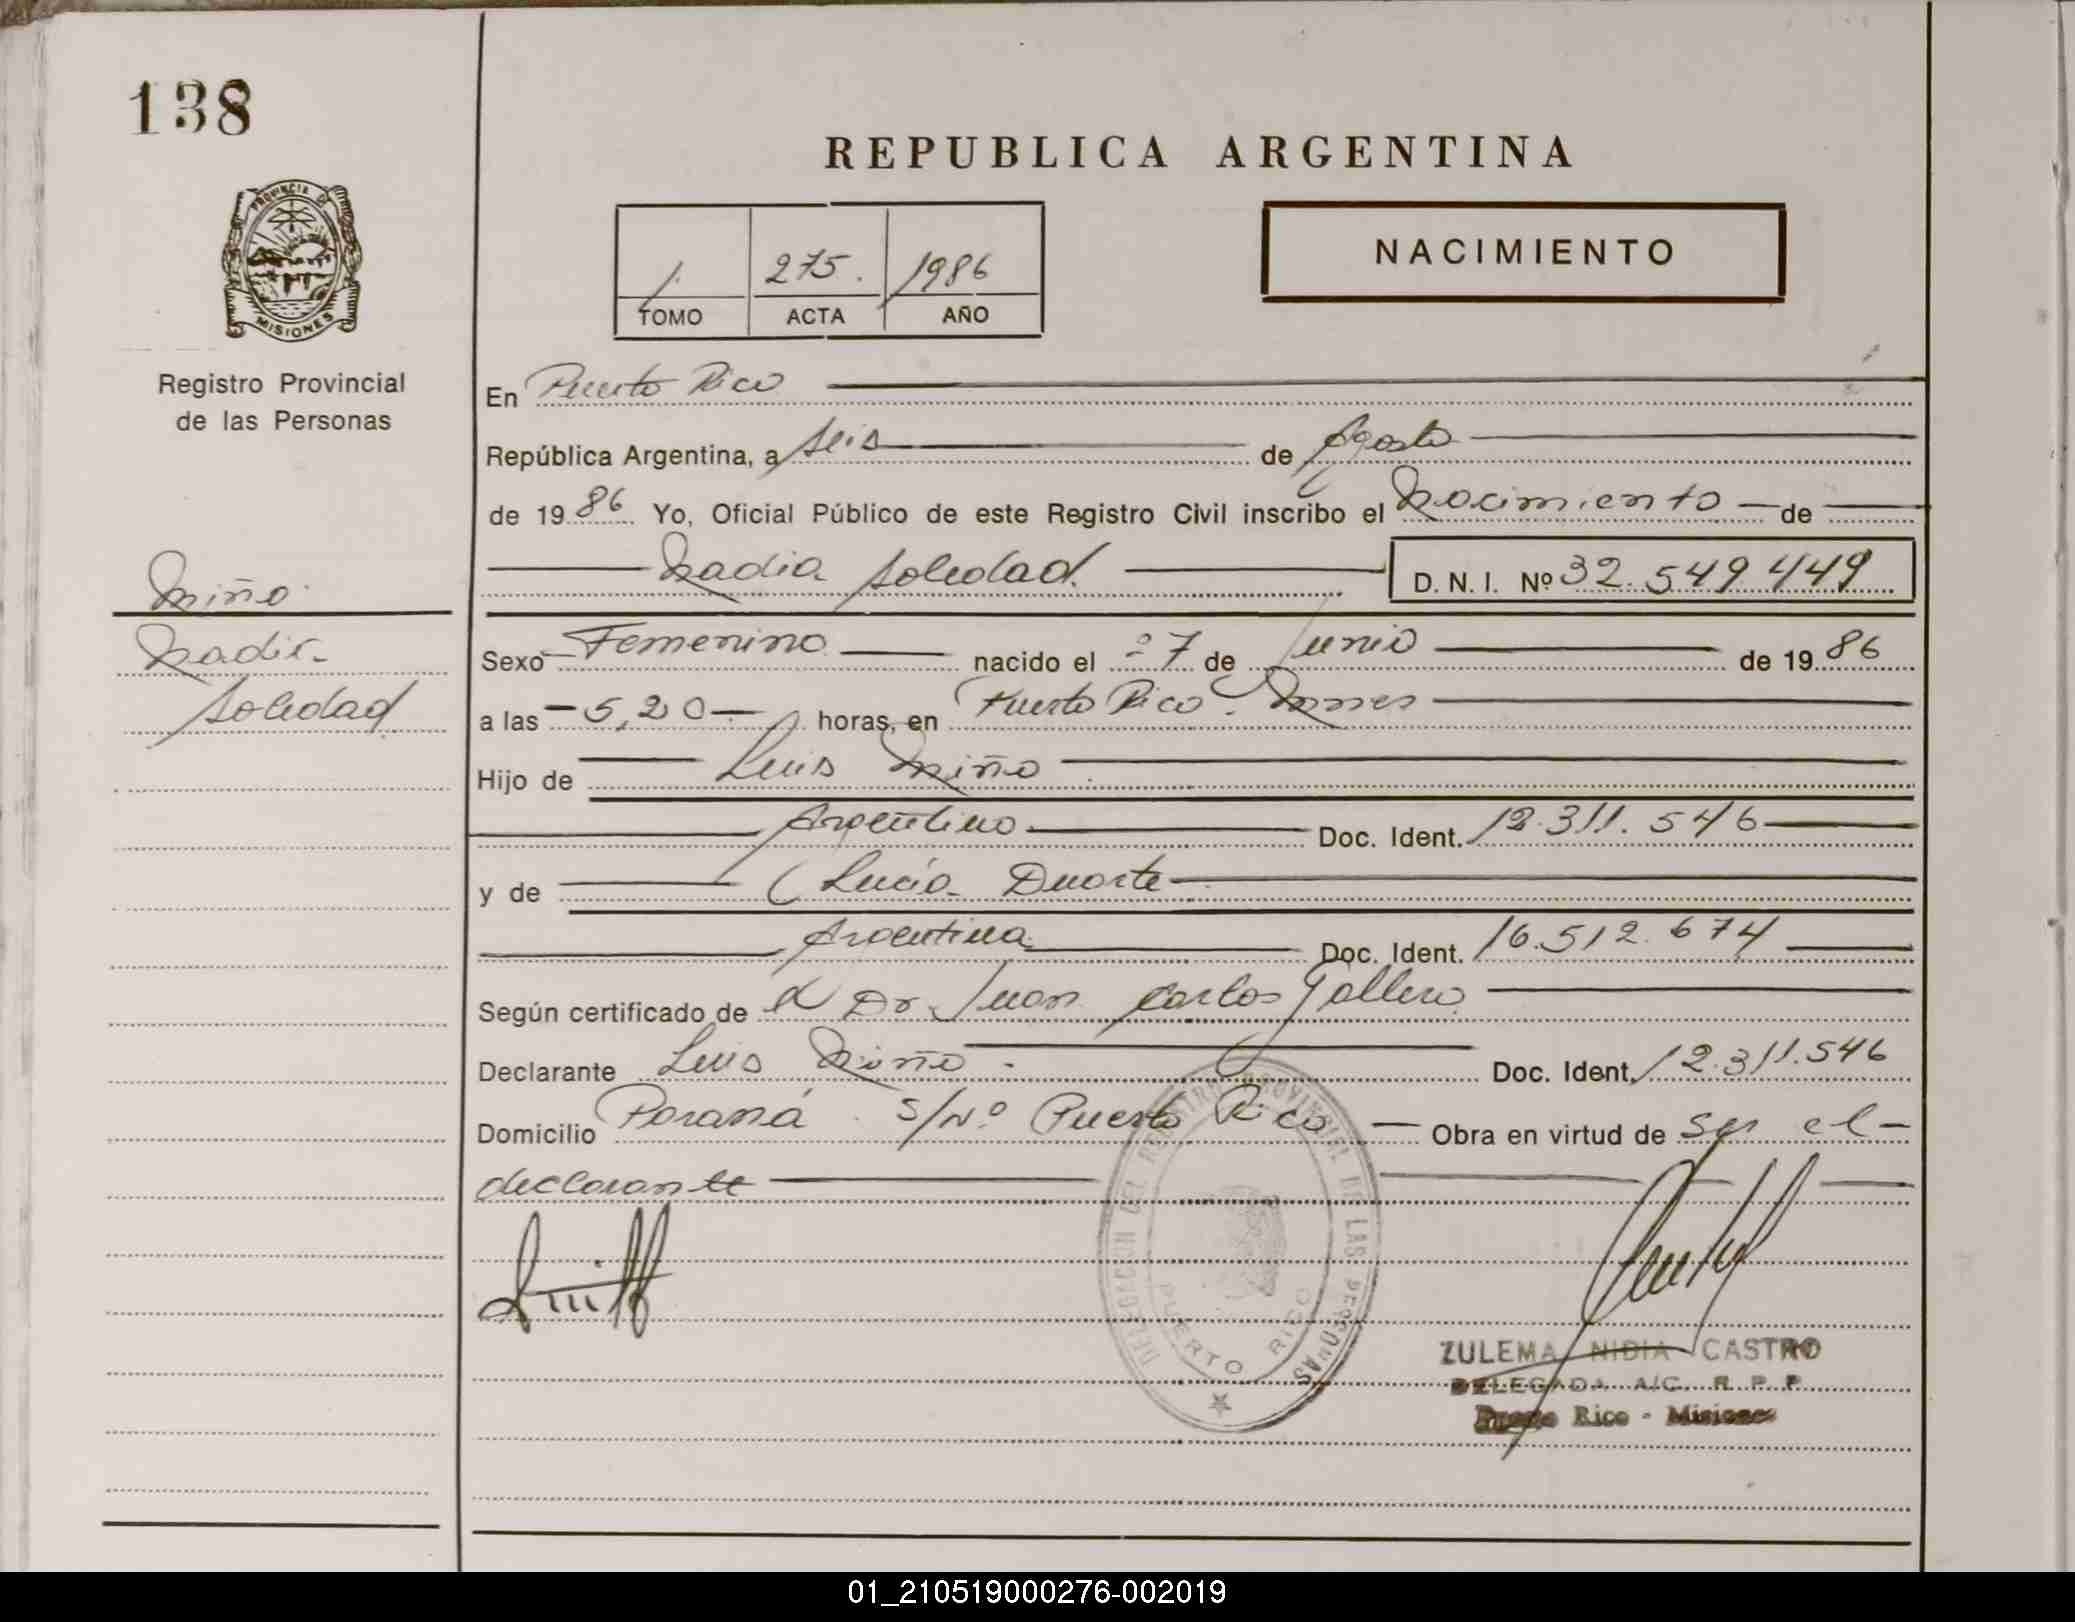 138
REPUBLICA ARGENTINA
PROVINCIA DE
MISIONES
Registro Provincial
de las Personas
1. 275. 1986
TOMO ACTA AÑO
NACIMIENTO
En Puerto Rico
República Argentina, a seis de Agosto
de 1986 Yo, Oficial Público de este Registro Civil inscribo el Nacimiento de
Nadia Soledad. D. N. I. Nº 32.549.449
Niño
Nadia
Soledad
Sexo Femenino nacido el 27 de Junio de 1986
a las 5,20 horas, en Puerto Rico
Hijo de Luis Niño
Argentino Doc. Ident. 12.311.546
y de Lucía Duarte
Argentina Doc. Ident. 16.512.674
Según certificado de Dr Juan Carlos Gallero
Declarante Luis Niño Doc. Ident. 12.311.546
Domicilio Paraná S/Nº Puerto Rico Obra en virtud de ser el
declarante
DELEGACION DEL REGISTRO PROVINCIAL DE LAS PERSONAS
PUERTO RICO
ZULEMA NIDIA CASTRO
DELEGADA A/C. R. P. P.
Puerto Rico - Misiones
01_210519000276-002019